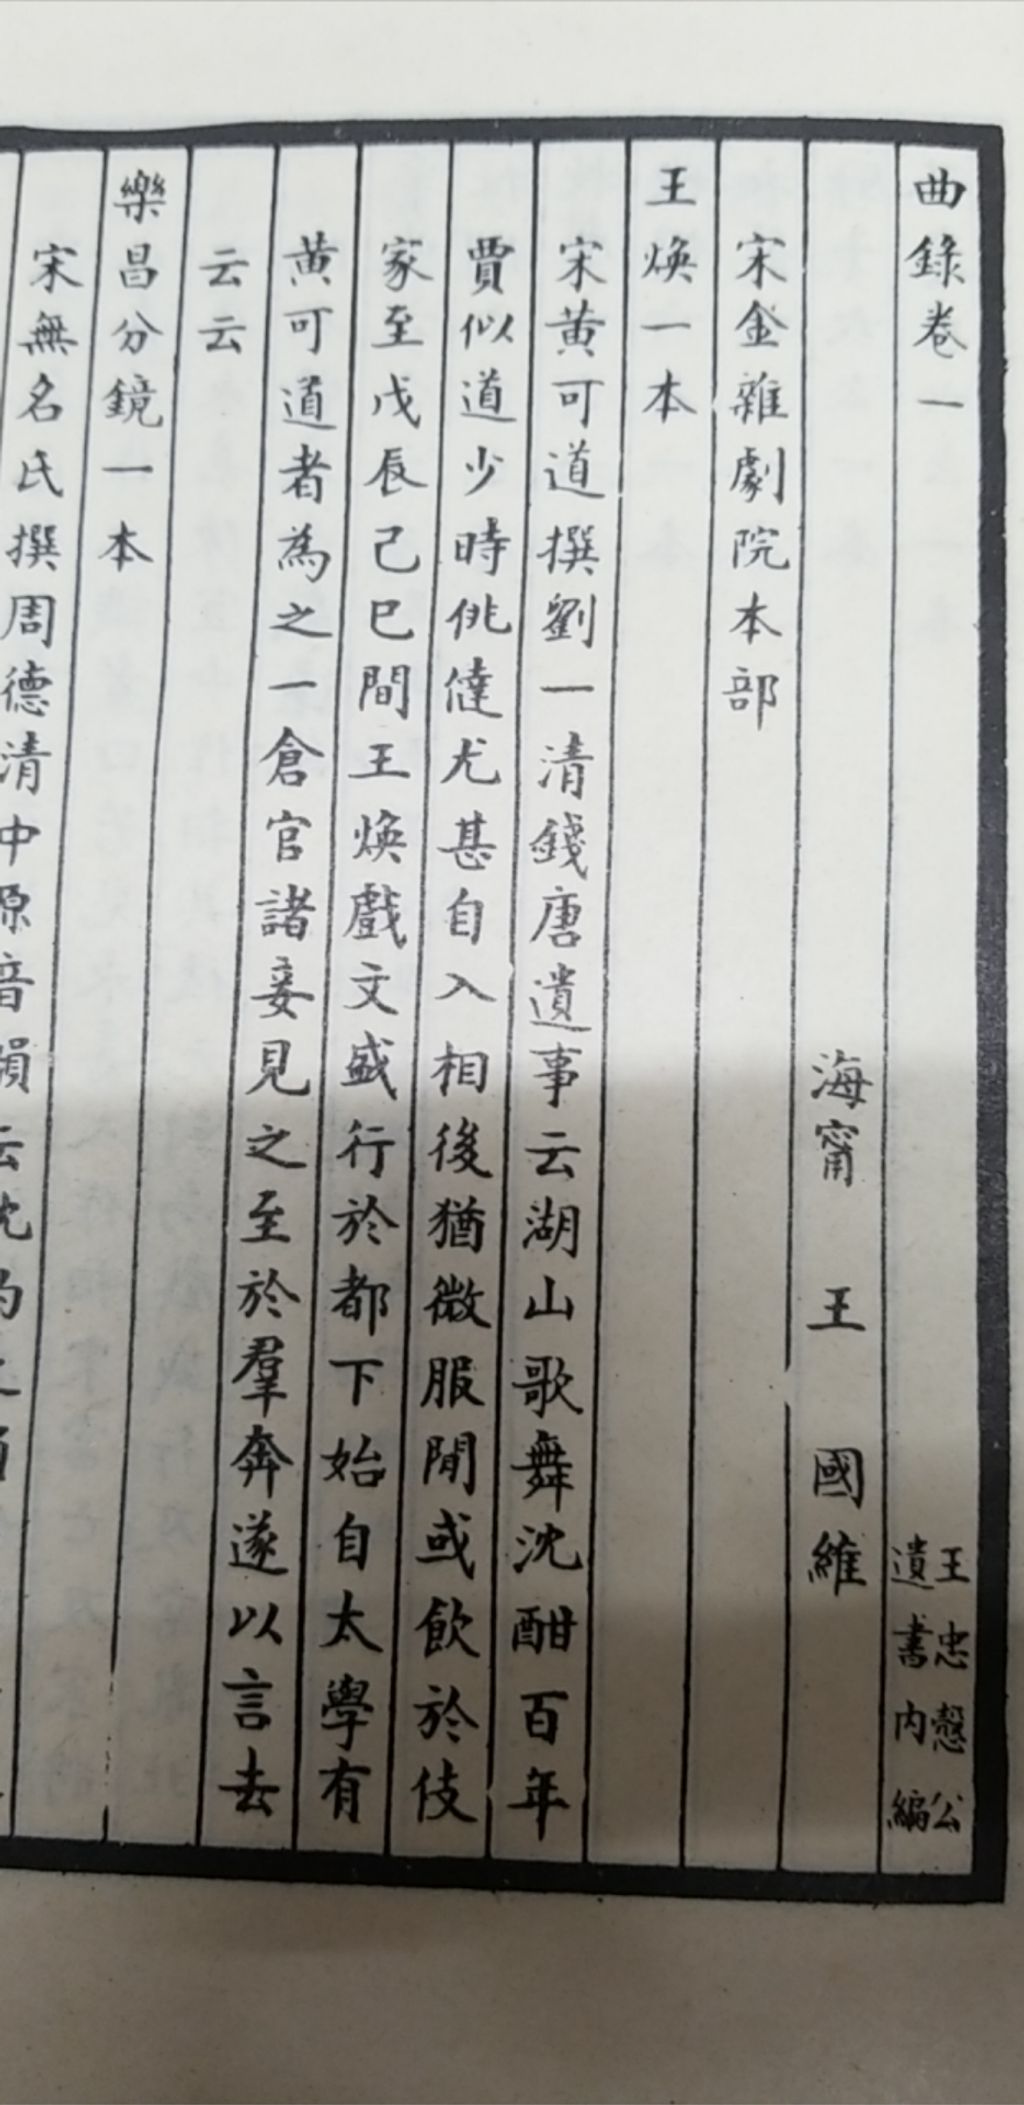 曲錄卷一
王忠慤公
遺書內編
海甯 王 國維
宋金雜劇院本部
王煥一本
宋黄可道撰劉一清錢唐遺事云湖山歌舞沈酣百年
賈似道少時佻㒓尤甚自入相後猶微服閒或飲於伎
家至戊辰己巳間王煥戲文盛行於都下始自太學有
黄可道者為之一倉官諸妾見之至於羣奔遂以言去
云云
樂昌分鏡一本
宋無名氏撰周德清中原音韻云沈約之